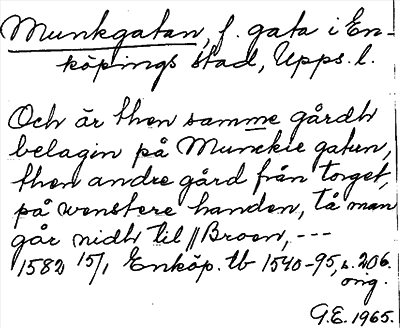 Munkgatan, f. gata i En-
köpings stad, Upps. l.
Och är then samme gårdh
belagin på Munckie gatun,
then andre gård från torget,
på wenstere handen, tå man
går nidh til // Broen, ---
1582 15/1 Enköp. tb 1540-95, s. 206.
orig.
G.E. 1965.